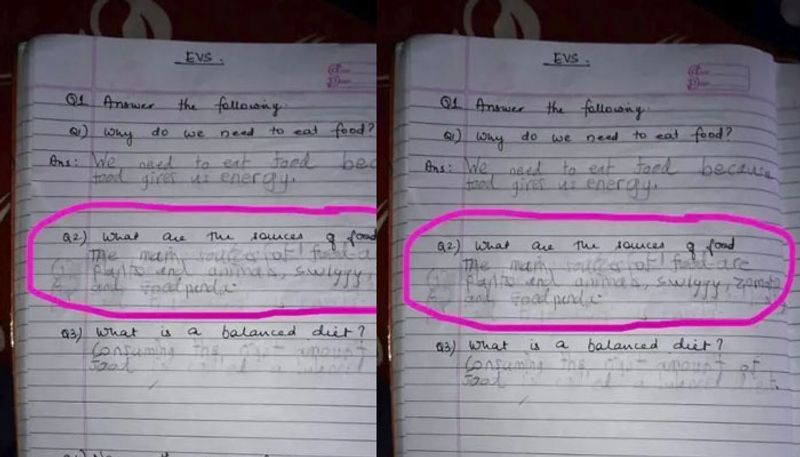 EVS.
Q1 Answer the following.
Q1) Why do we need to eat food?
Ans: We need to eat food bec
food gives us energy.
Q2) What are the sources of food
The main sources of food a
plants and animals, swiggy,
and foodpanda
Q3) What is a balanced diet?
Consuming the right amount
food is called a balanced
EVS.
Q1 Answer the following.
Q1) Why do we need to eat food?
Ans: We need to eat food because
food gives us energy.
Q2) What are the sources of food
The main sources of food are
plants and animals, swiggy, zomato
and foodpanda
Q3) What is a balanced diet?
Consuming the right amount of
food is called a balanced diet.